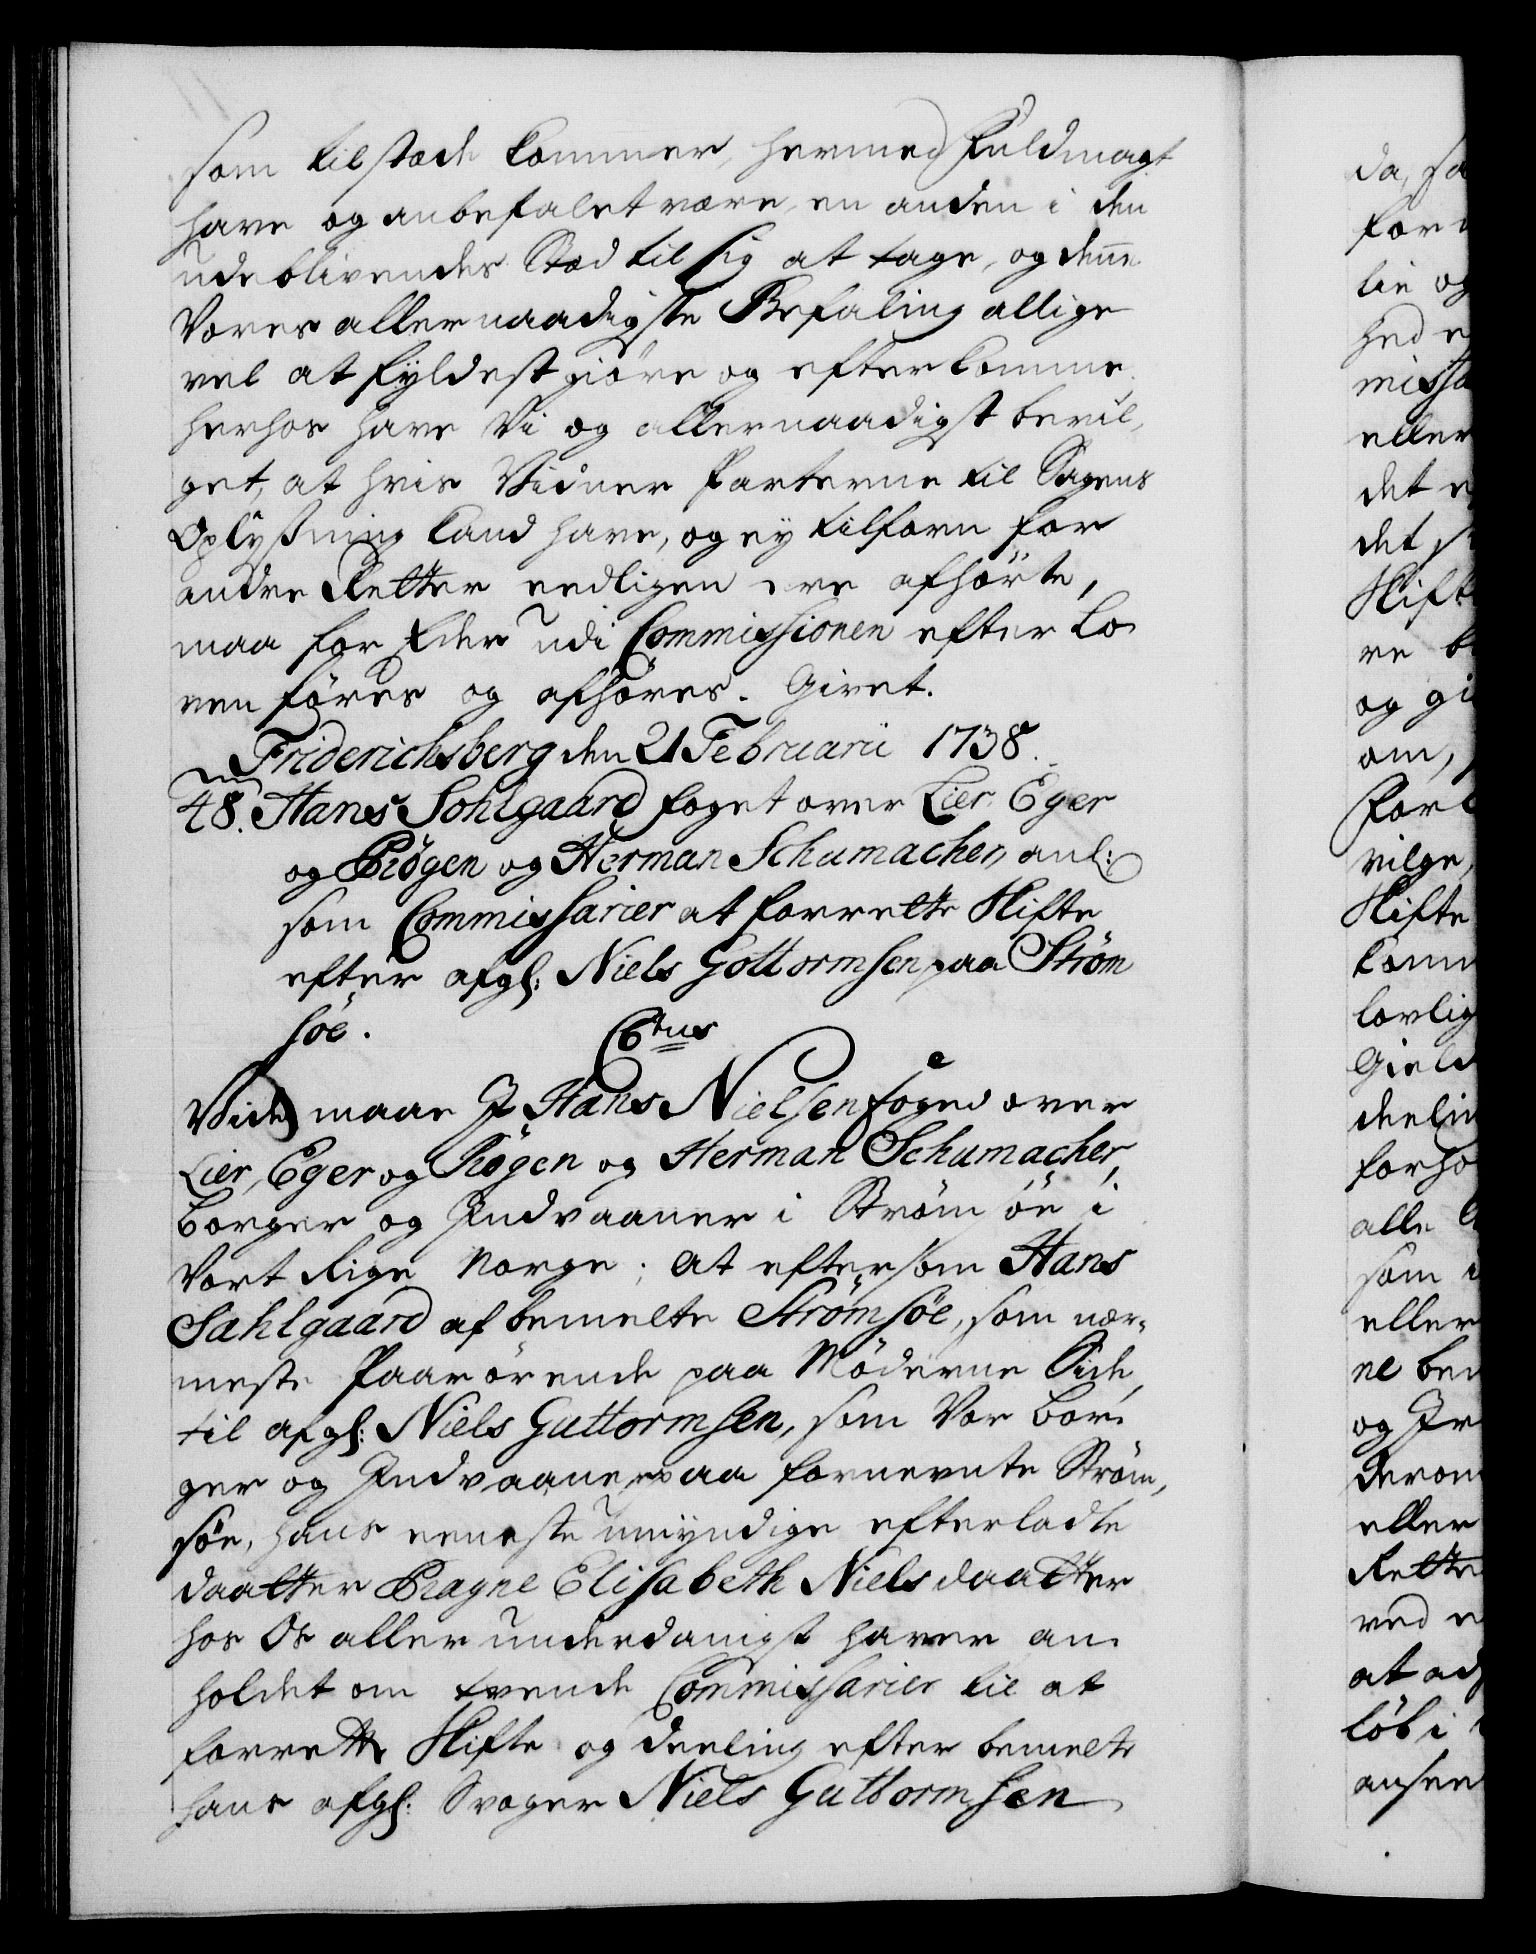 som tilstæde kommer, hermed Fuldmagt
have og anbefalet være, en anden i den
udeblivendes Stæd til sig at tage, og denne
Vores allernaadigste Befaling allige
vel at fyldestgiöre og efterkomme.
herhos have Vi og allernaadigst bevil,
get, at hvis Vidner Parterne til Sagens
Oplysning kand have, og ey tilforn for
andre Retter eedligen ere afhörte,
maa for Eder udi Commissionen efter Lo
ven föres og afhöres. Givet.
Friderichsberg den 21 Februarii 1738.
48. Hans Sohlgaard foget over Lier Eger
og Rögen og Herman Schumacher, anl:
som Commissarier at forrette Skifte
efter afgl: Niels Gottormsen paa Ström
söe.
C6tus
Vide maae I Hans Nielsen foged over
Lier, Eger og Rögen og Herman Schumacher,
borger og Indvaaner i Strömsöe i
Vort Rige Norge; At eftersom Hans
Sahlgaard af bemelte Strömsöe, som nær,
meste Paarörende paa Möderne Side,
til afgl: Niels Guttormsen, som Var bor
ger og Indvaaner paa fornevnte Ström,
söe, hans eeneste umyndige efterladte
daatter Ragne Elisabeth Nielsdaatter
hos Os allerunderdanigst haver an
holdet om tvende Commissarier til at
forrette Skifte og deeling efter bemelte
hans afgl: Svoger Niels Guttormsen
da, sa
for
lie og
hed e
missa
eller
det e
det
Skift
re b
og gi
om,
For
vilge,
Skifte
komm
lovlig
Gield
deelin
forho
alle
som
eller
ne ben
og Ir
derom
eller
Rette
ved e
at ad
löb i
ansee